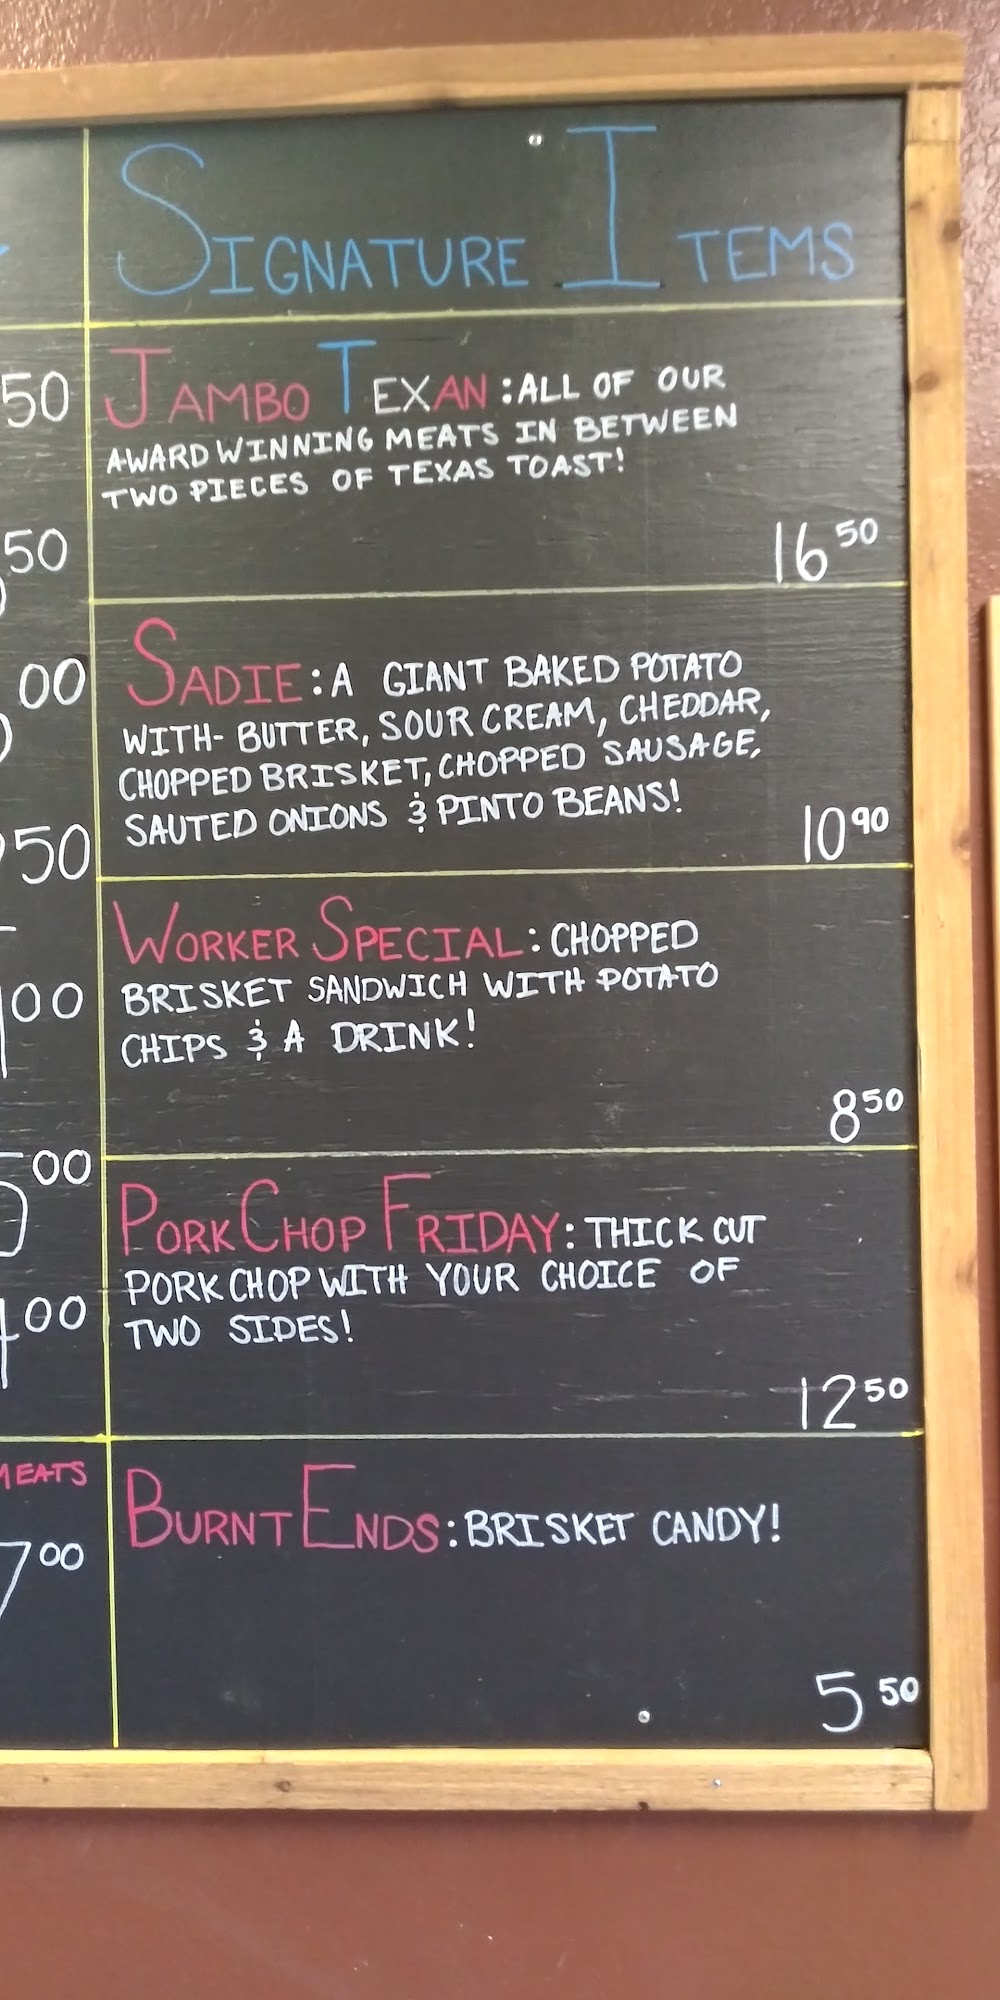 SIGNATURE ITEMS
50
JAMBO TEXAN : ALL OF OUR
AWARD WINNING MEATS IN BETWEEN
TWO PIECES OF TEXAS TOAST!
16 50
50
00
SADIE : A GIANT BAKED POTATO
WITH- BUTTER, SOUR CREAM, CHEDDAR,
CHOPPED BRISKET, CHOPPED SAUSAGE,
SAUTED ONIONS & PINTO BEANS!
10 90
50
WORKER SPECIAL : CHOPPED
BRISKET SANDWICH WITH POTATO
CHIPS & A DRINK!
8 50
00
00
PORK CHOP FRIDAY : THICK CUT
PORK CHOP WITH YOUR CHOICE OF
TWO SIDES!
12 50
00
MEATS
BURNT ENDS : BRISKET CANDY!
7 00
5 50